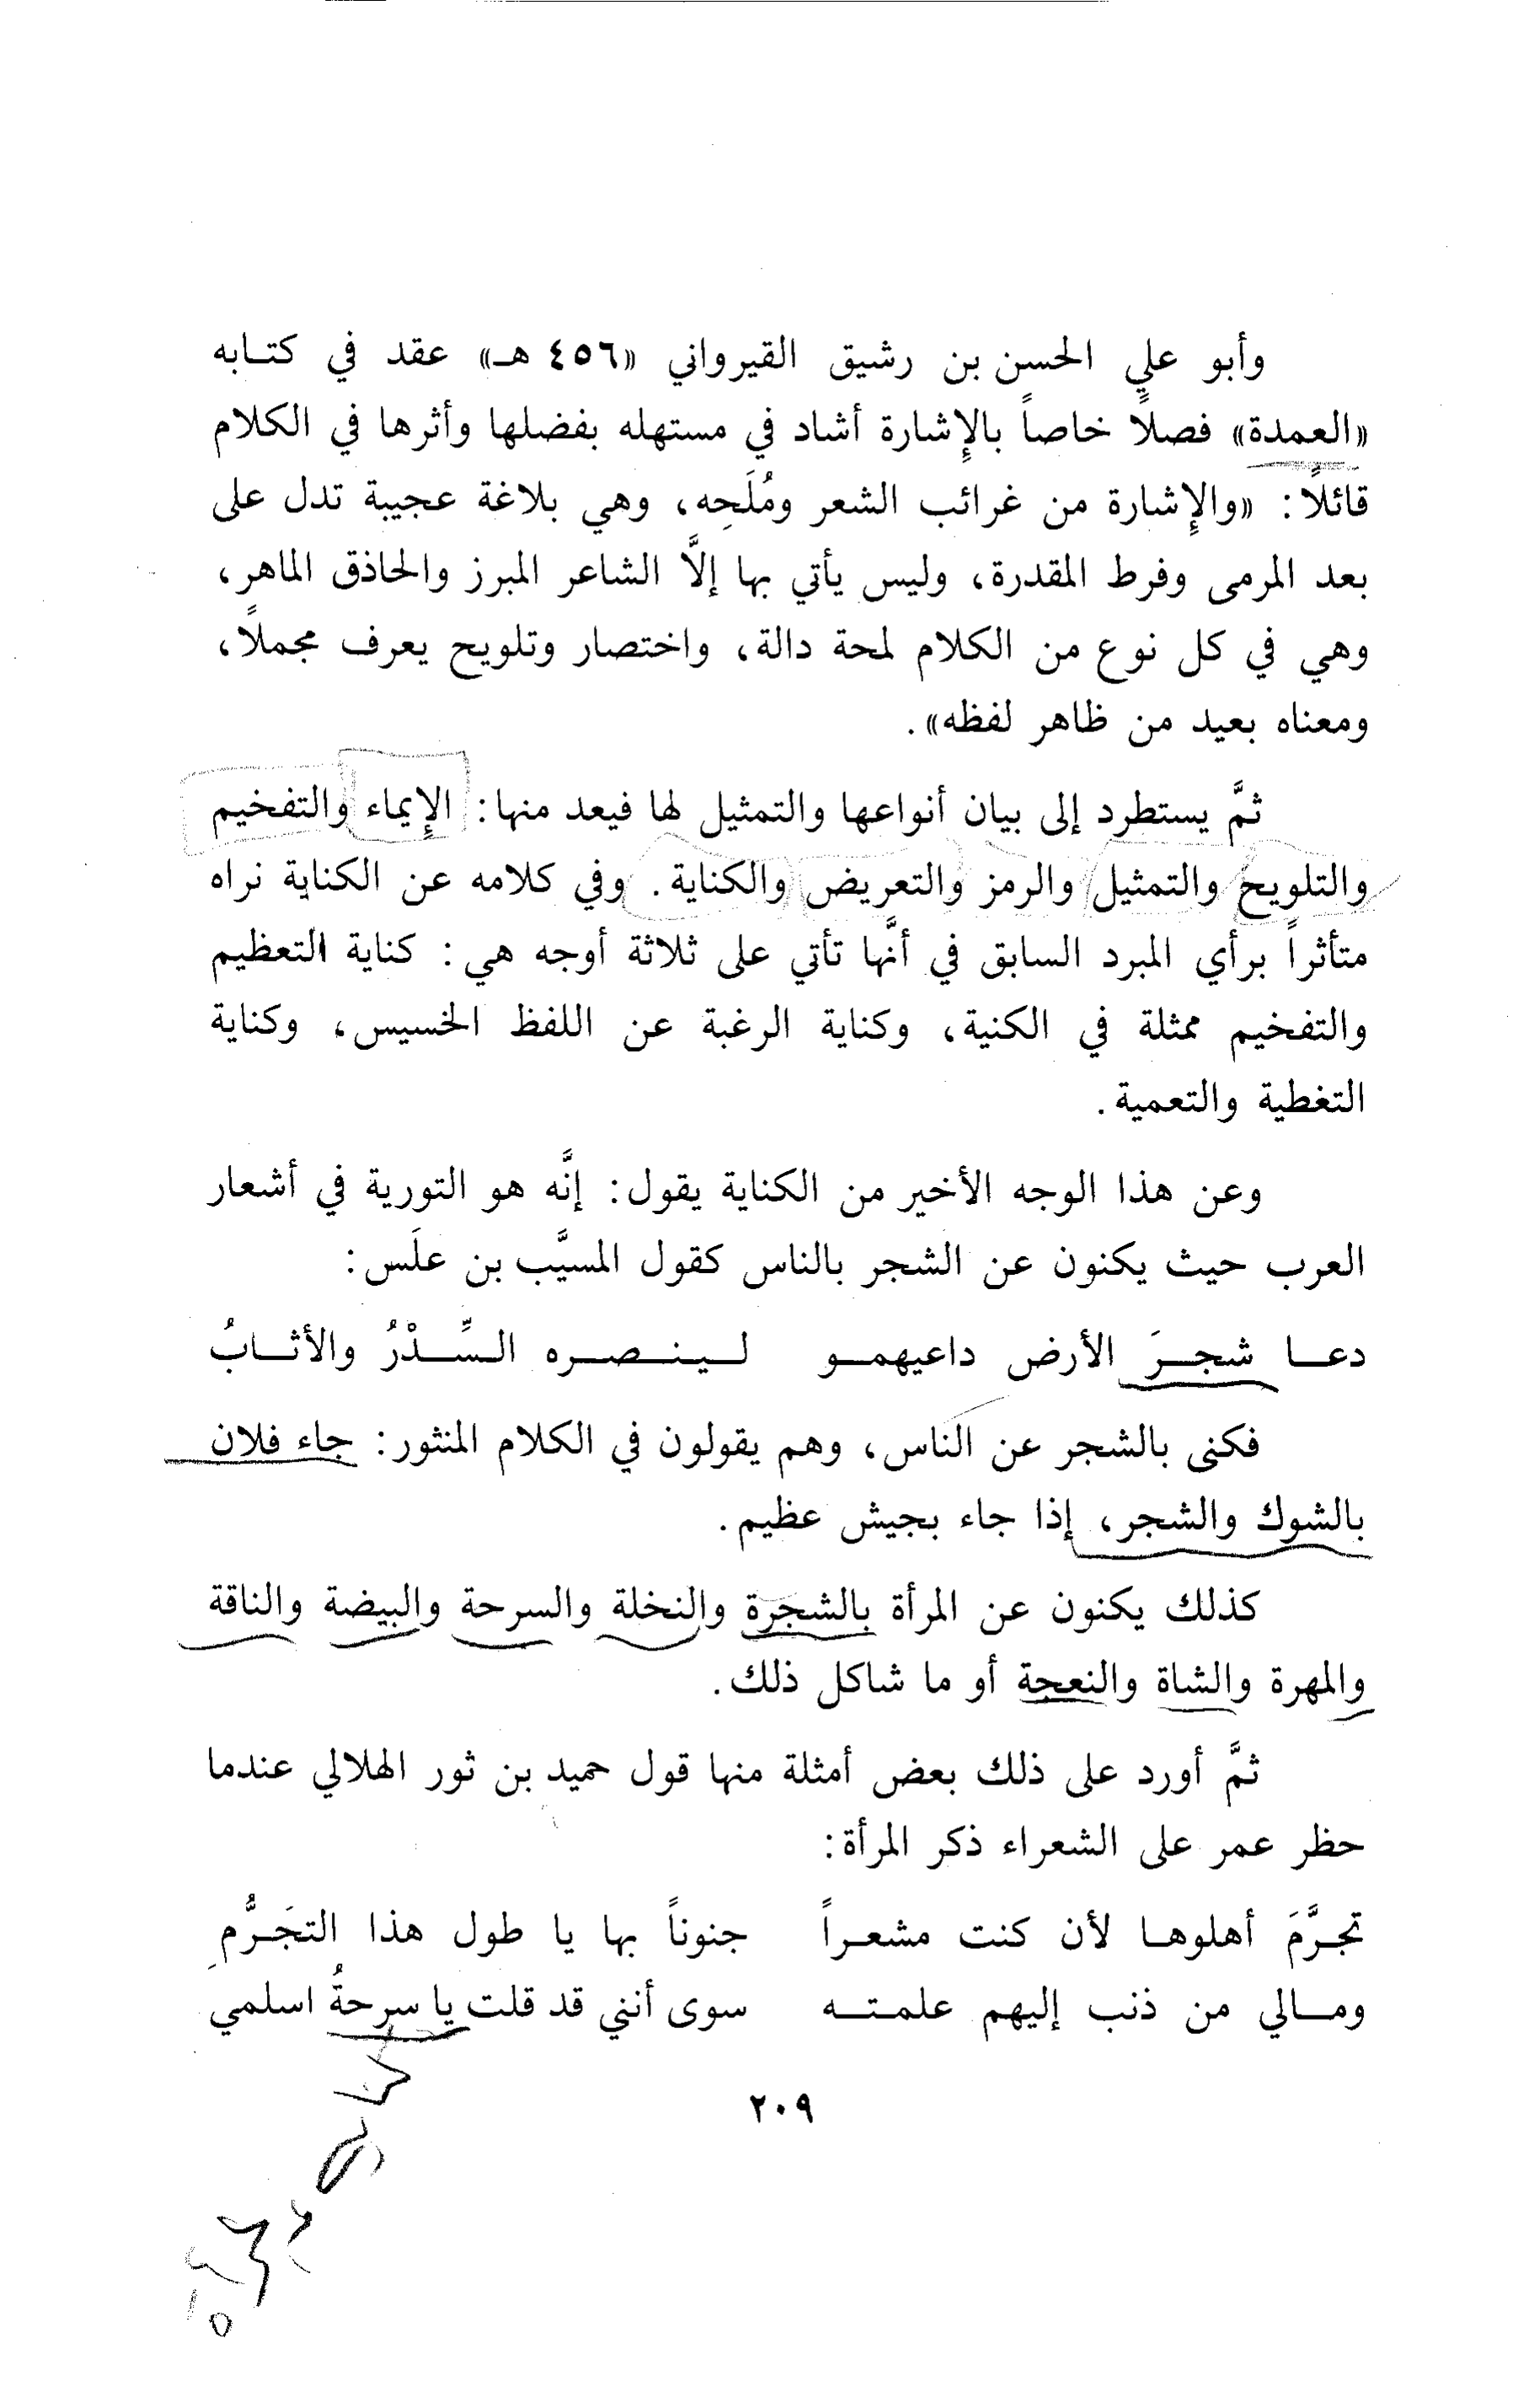 وأبو علي الحسن بن رشيق القيرواني «٤٥٦ هـ» عقد في كتابه
«العمدة» فصلاً خاصاً بالإِشارة أشاد في مستهله بفضلها وأثرها في الكلام
قائلاً: «والإِشارة من غرائب الشعر ومُلَحِه، وهي بلاغة عجيبة تدل على
بعد المرمى وفرط المقدرة، وليس يأتي بها إلاَّ الشاعر المبرز والحاذق الماهر،
وهي في كل نوع من الكلام لمحة دالة، واختصار وتلويح يعرف مجملاً،
ومعناه بعيد من ظاهر لفظه».
ثمَّ يستطرد إلى بيان أنواعها والتمثيل لها فيعد منها: الإِيماء والتفخيم
والتلويح والتمثيل والرمز والتعريض والكناية. وفي كلامه عن الكناية نراه
متأثراً برأي المبرد السابق في أنَّها تأتي على ثلاثة أوجه هي: كناية التعظيم
والتفخيم ممثلة في الكنية، وكناية الرغبة عن اللفظ الخسيس، وكناية
التغطية والتعمية.
وعن هذا الوجه الأخير من الكناية يقول: إنَّه هو التورية في أشعار
العرب حيث يكنون عن الشجر بالناس كقول المسيَّب بن علَس:
دعا شجرَ الأرض داعيهمو لينصره السِّدْرُ والأثابُ
فكنى بالشجر عن الناس، وهم يقولون في الكلام المنثور: جاء فلان
بالشوك والشجر، إذا جاء بجيش عظيم.
كذلك يكنون عن المرأة بالشجرة والنخلة والسرحة والبيضة والناقة
والمهرة والشاة والنعجة أو ما شاكل ذلك.
ثمَّ أورد على ذلك بعض أمثلة منها قول حميد بن ثور الهلالي عندما
حظر عمر على الشعراء ذكر المرأة:
تجرَّمَ أهلوها لأن كنت مشعراً جنوناً بها يا طول هذا التجَرُّمِ
ومالي من ذنب إليهم علمته سوى أنني قد قلت يا سرحةُ اسلمي
٢٠٩